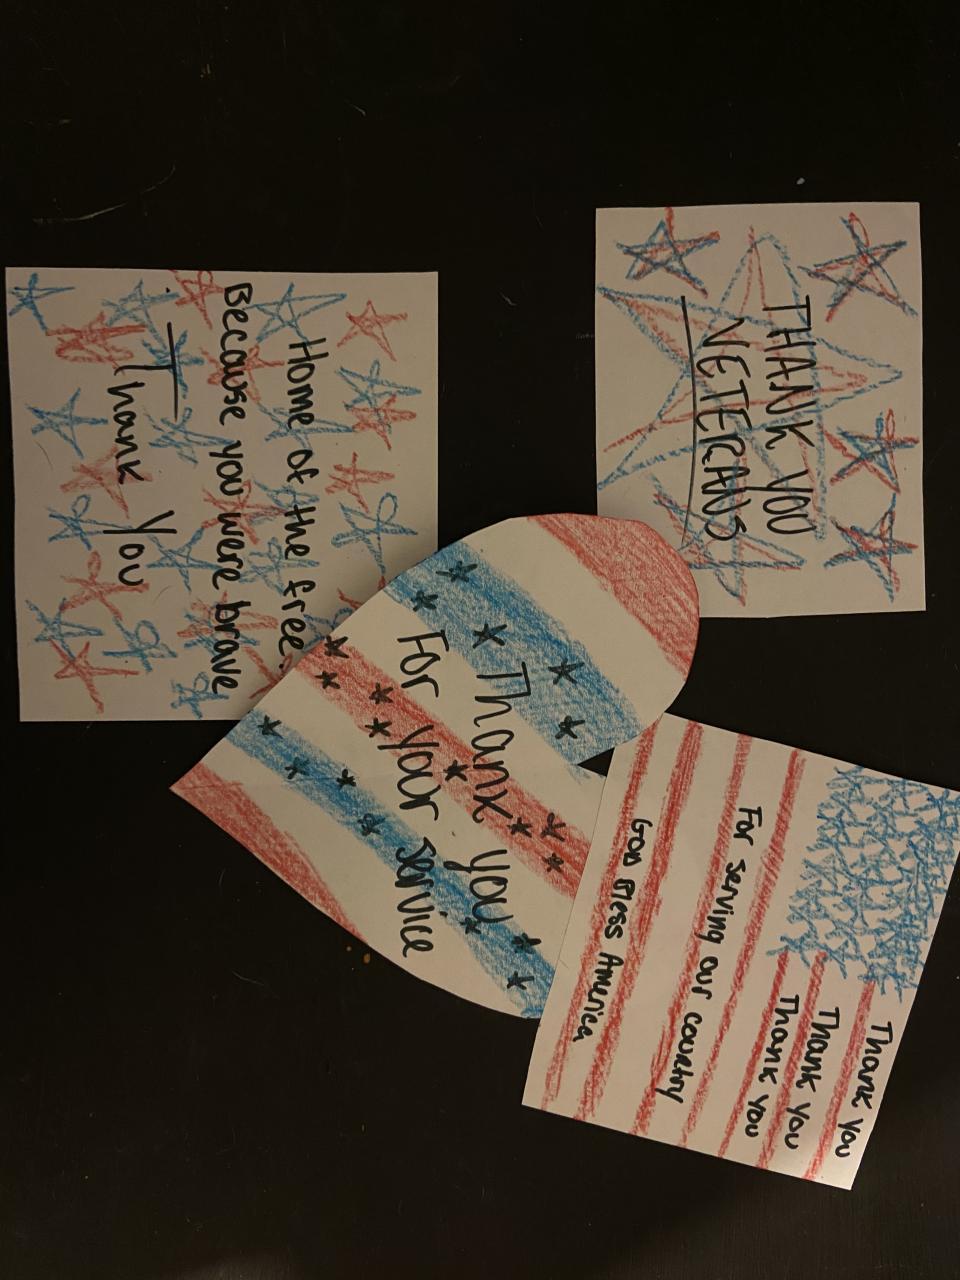 THANK YOU
VETERANS
Home of the free.
Because you were brave
Thank You
Thank you
For your service
Thank you
Thank you
Thank you
For serving our country
God Bless America